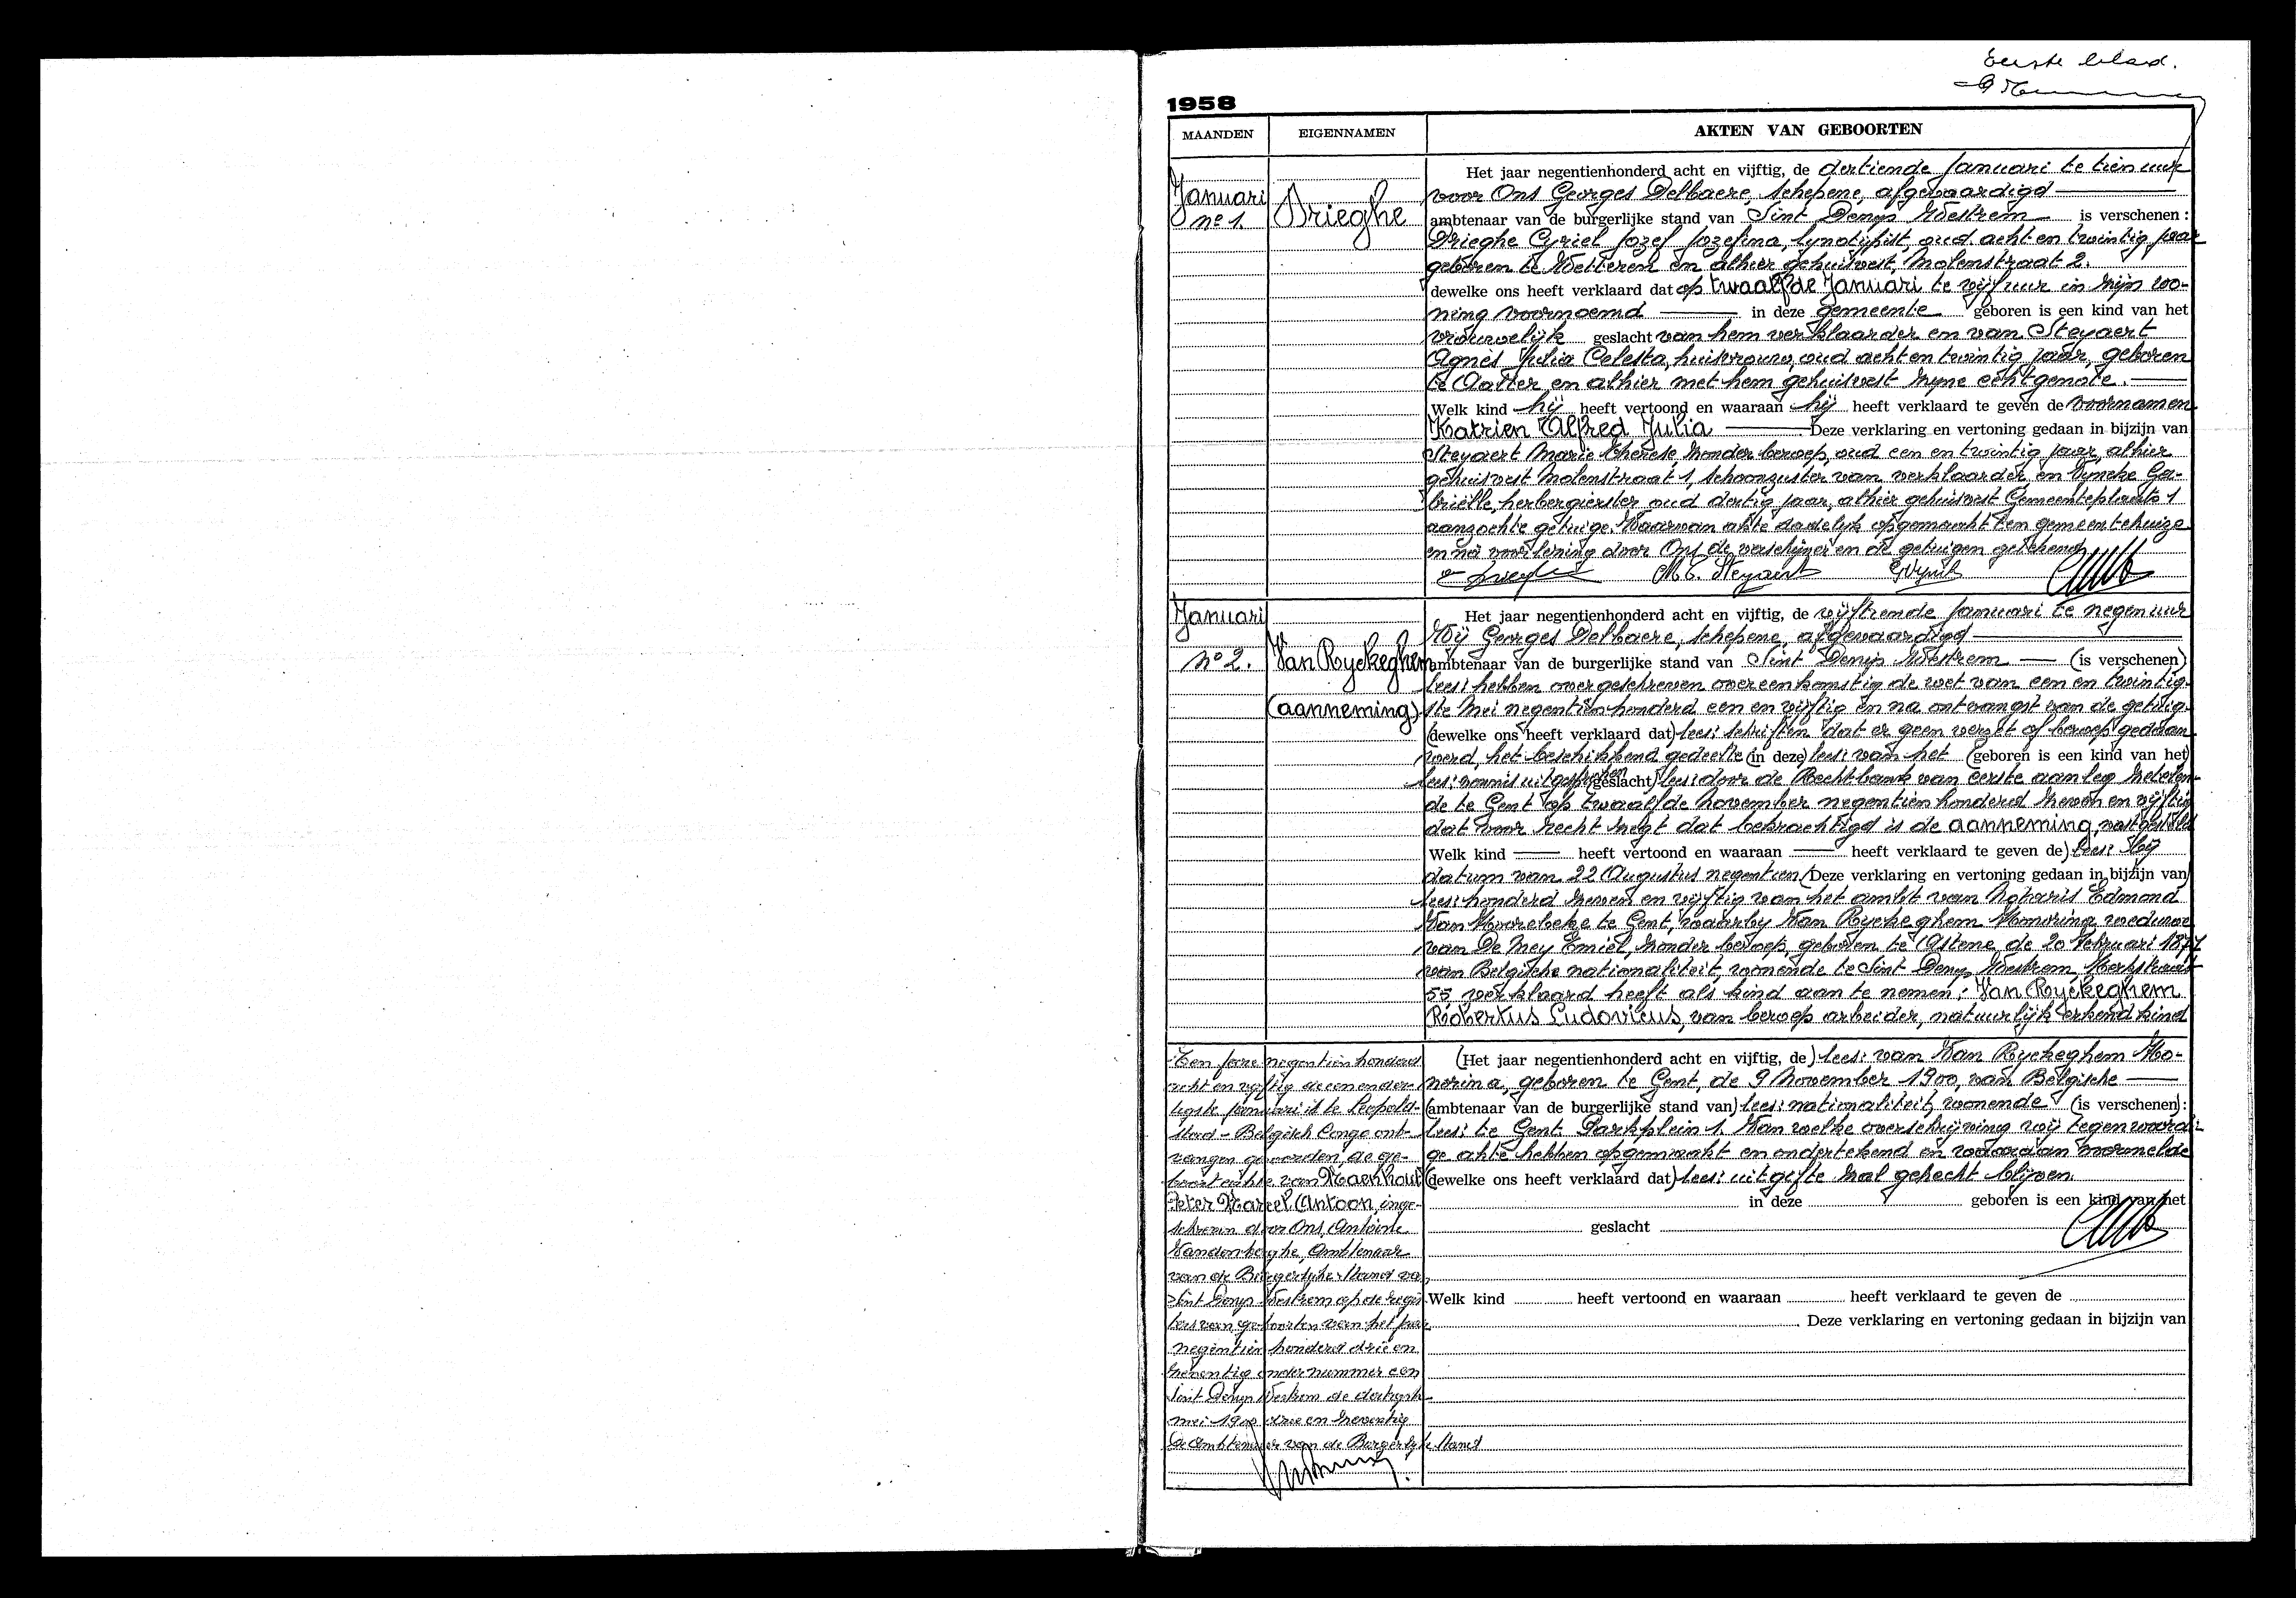 Eerste blad.
1958
MAANDEN EIGENNAMEN AKTEN VAN GEBOORTEN
Januari
nº 1.
Drieghe
Het jaar negentienhonderd acht en vijftig, de dertiende Januari te tien uur
voor Ons Georges Delbaere, schepene, afgevaardigd
ambtenaar van de burgerlijke stand van Sint Denys Westrem is verschenen :
Drieghe Cyriel Jozef Jozefina, lynotypist, oud acht en twintig jaar
geboren te Wetteren en alhier gehuisvest, Molenstraat 2.
dewelke ons heeft verklaard dat op twaalfde Januari te vijf uur in zijn wo-
ning voornoemd in deze gemeente geboren is een kind van het
vrouwelijk geslacht van hem verklaarder en van Steyaert
Agnès Julia Celesta, huisvrouw, oud acht en twintig jaar, geboren
te Aalter en alhier met hem gehuisvest zijne echtgenote.
Welk kind hij heeft vertoond en waaraan hij heeft verklaard te geven de voornamen
Katrien Alfred Julia Deze verklaring en vertoning gedaan in bijzijn van
Steyaert Marie Thérèse zonder beroep, oud een en twintig jaar, alhier
gehuisvest Molenstraat 1, schoonzuster van verklaarder en Vyncke Ga-
briëlle, herbergierster oud dertig jaar, alhier gehuisvest Gemeenteplaats 1
aangezochte getuige. Waarvan akte dadelijk opgemaakt ten gemeentehuize
en na voorlezing door Ons, de verschijner en de getuigen getekend
M.T. Steyaert
Januari
nº 2.
Van Ryckeghem
(aanneming)
Het jaar negentienhonderd acht en vijftig, de vijftiende Januari te negen uur
Wij Georges Delbaere, schepene, afgevaardigd
ambtenaar van de burgerlijke stand van Sint Denys Westrem (is verschenen)
lees: hebben overgeschreven overeenkomstig de wet van een en twintig-
ste Mei negentienhonderd een en vijftig en na ontvangst van de getuig-
(dewelke ons heeft verklaard dat) lees: schriften dat er geen verzet of beroep gedaan
werd, het beschikkend gedeelte (in deze) lees: van het (geboren is een kind van het)
lees: vonnis uitgesproken (geslacht) lees: door de Rechtbank van eerste aanleg zetelen-
de te Gent op twaalfde november negentienhonderd zeven en vijftig
dat voor recht zegt dat bekrachtigd is de aanneming, vastgesteld
Welk kind heeft vertoond en waaraan heeft verklaard te geven de) lees: bij
datum van 22 Augustus negentien (Deze verklaring en vertoning gedaan in bijzijn van)
lees: honderd zeven en vijftig van het ambt van Notaris Edmond
Van Moorebeke te Gent, waarbij Van Ryckeghem Honorina, weduwe
van De Mey Emiel, zonder beroep, geboren te Astene, de 20 Februari 1877
van Belgische nationaliteit, wonende te Sint Denys Westrem, Kerkstraat
55, verklaard heeft als kind aan te nemen: Van Ryckeghem
Robertus Ludovicus, van beroep arbeider, natuurlijk erkend kind
(Het jaar negentienhonderd acht en vijftig, de) lees: van Van Ryckeghem Ho-
norina, geboren te Gent, de 9 November 1900, van Belgische
(ambtenaar van de burgerlijke stand van) lees: nationaliteit, wonende (is verschenen):
lees: te Gent. Parkplein 1. Van welke overschrijving wij tegenwoordi-
ge akte hebben opgemaakt en ondertekend en waaraan voormelde
(dewelke ons heeft verklaard dat) lees: uitgifte zal gehecht blijven.
in deze geboren is een kind van het
geslacht
Welk kind heeft vertoond en waaraan heeft verklaard te geven de
Deze verklaring en vertoning gedaan in bijzijn van
Ten jare negentienhonderd
acht en vijftig de een en der-
tigste januari is te Leopold-
stad - Belgisch Congo ont-
vangen geworden, de ge-
boorteakte van Haerhout
Peter Karel Antoon, inge-
schreven door Ons, Antoine
Vandenberghe, Ambtenaar
van de Burgerlijke Stand van
Sint Denys Westrem op de regis-
ters van geboorten van het jaar
negentien honderd drie en
zeventig onder nummer een
Sint Denys Westrem de dertigste
mei 1900 drie en zeventig
De Ambtenaar van de Burgerlijke Stand